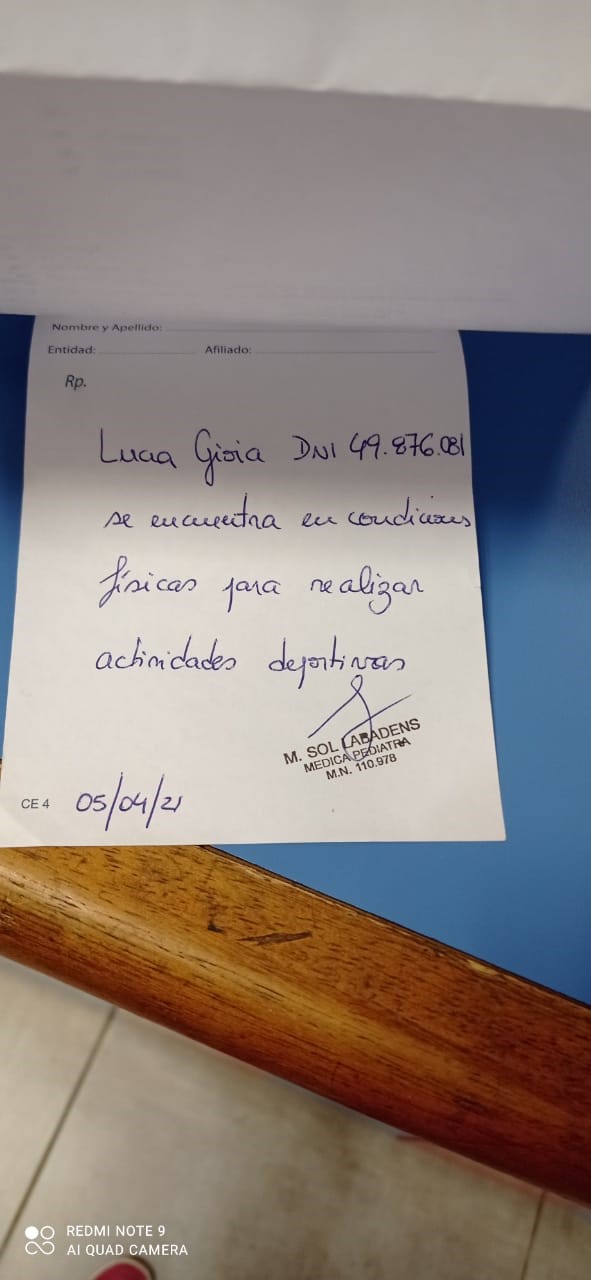 Nombre y Apellido:
Entidad: Afiliado:
Rp.
Lucia Gioia DNI 49.876.081
se encuentra en condiciones
físicas para realizar
actividades deportivas
M. SOL LABADENS
MEDICA PEDIATRA
M.N. 110.978
CE 4 05/04/21
REDMI NOTE 9
AI QUAD CAMERA